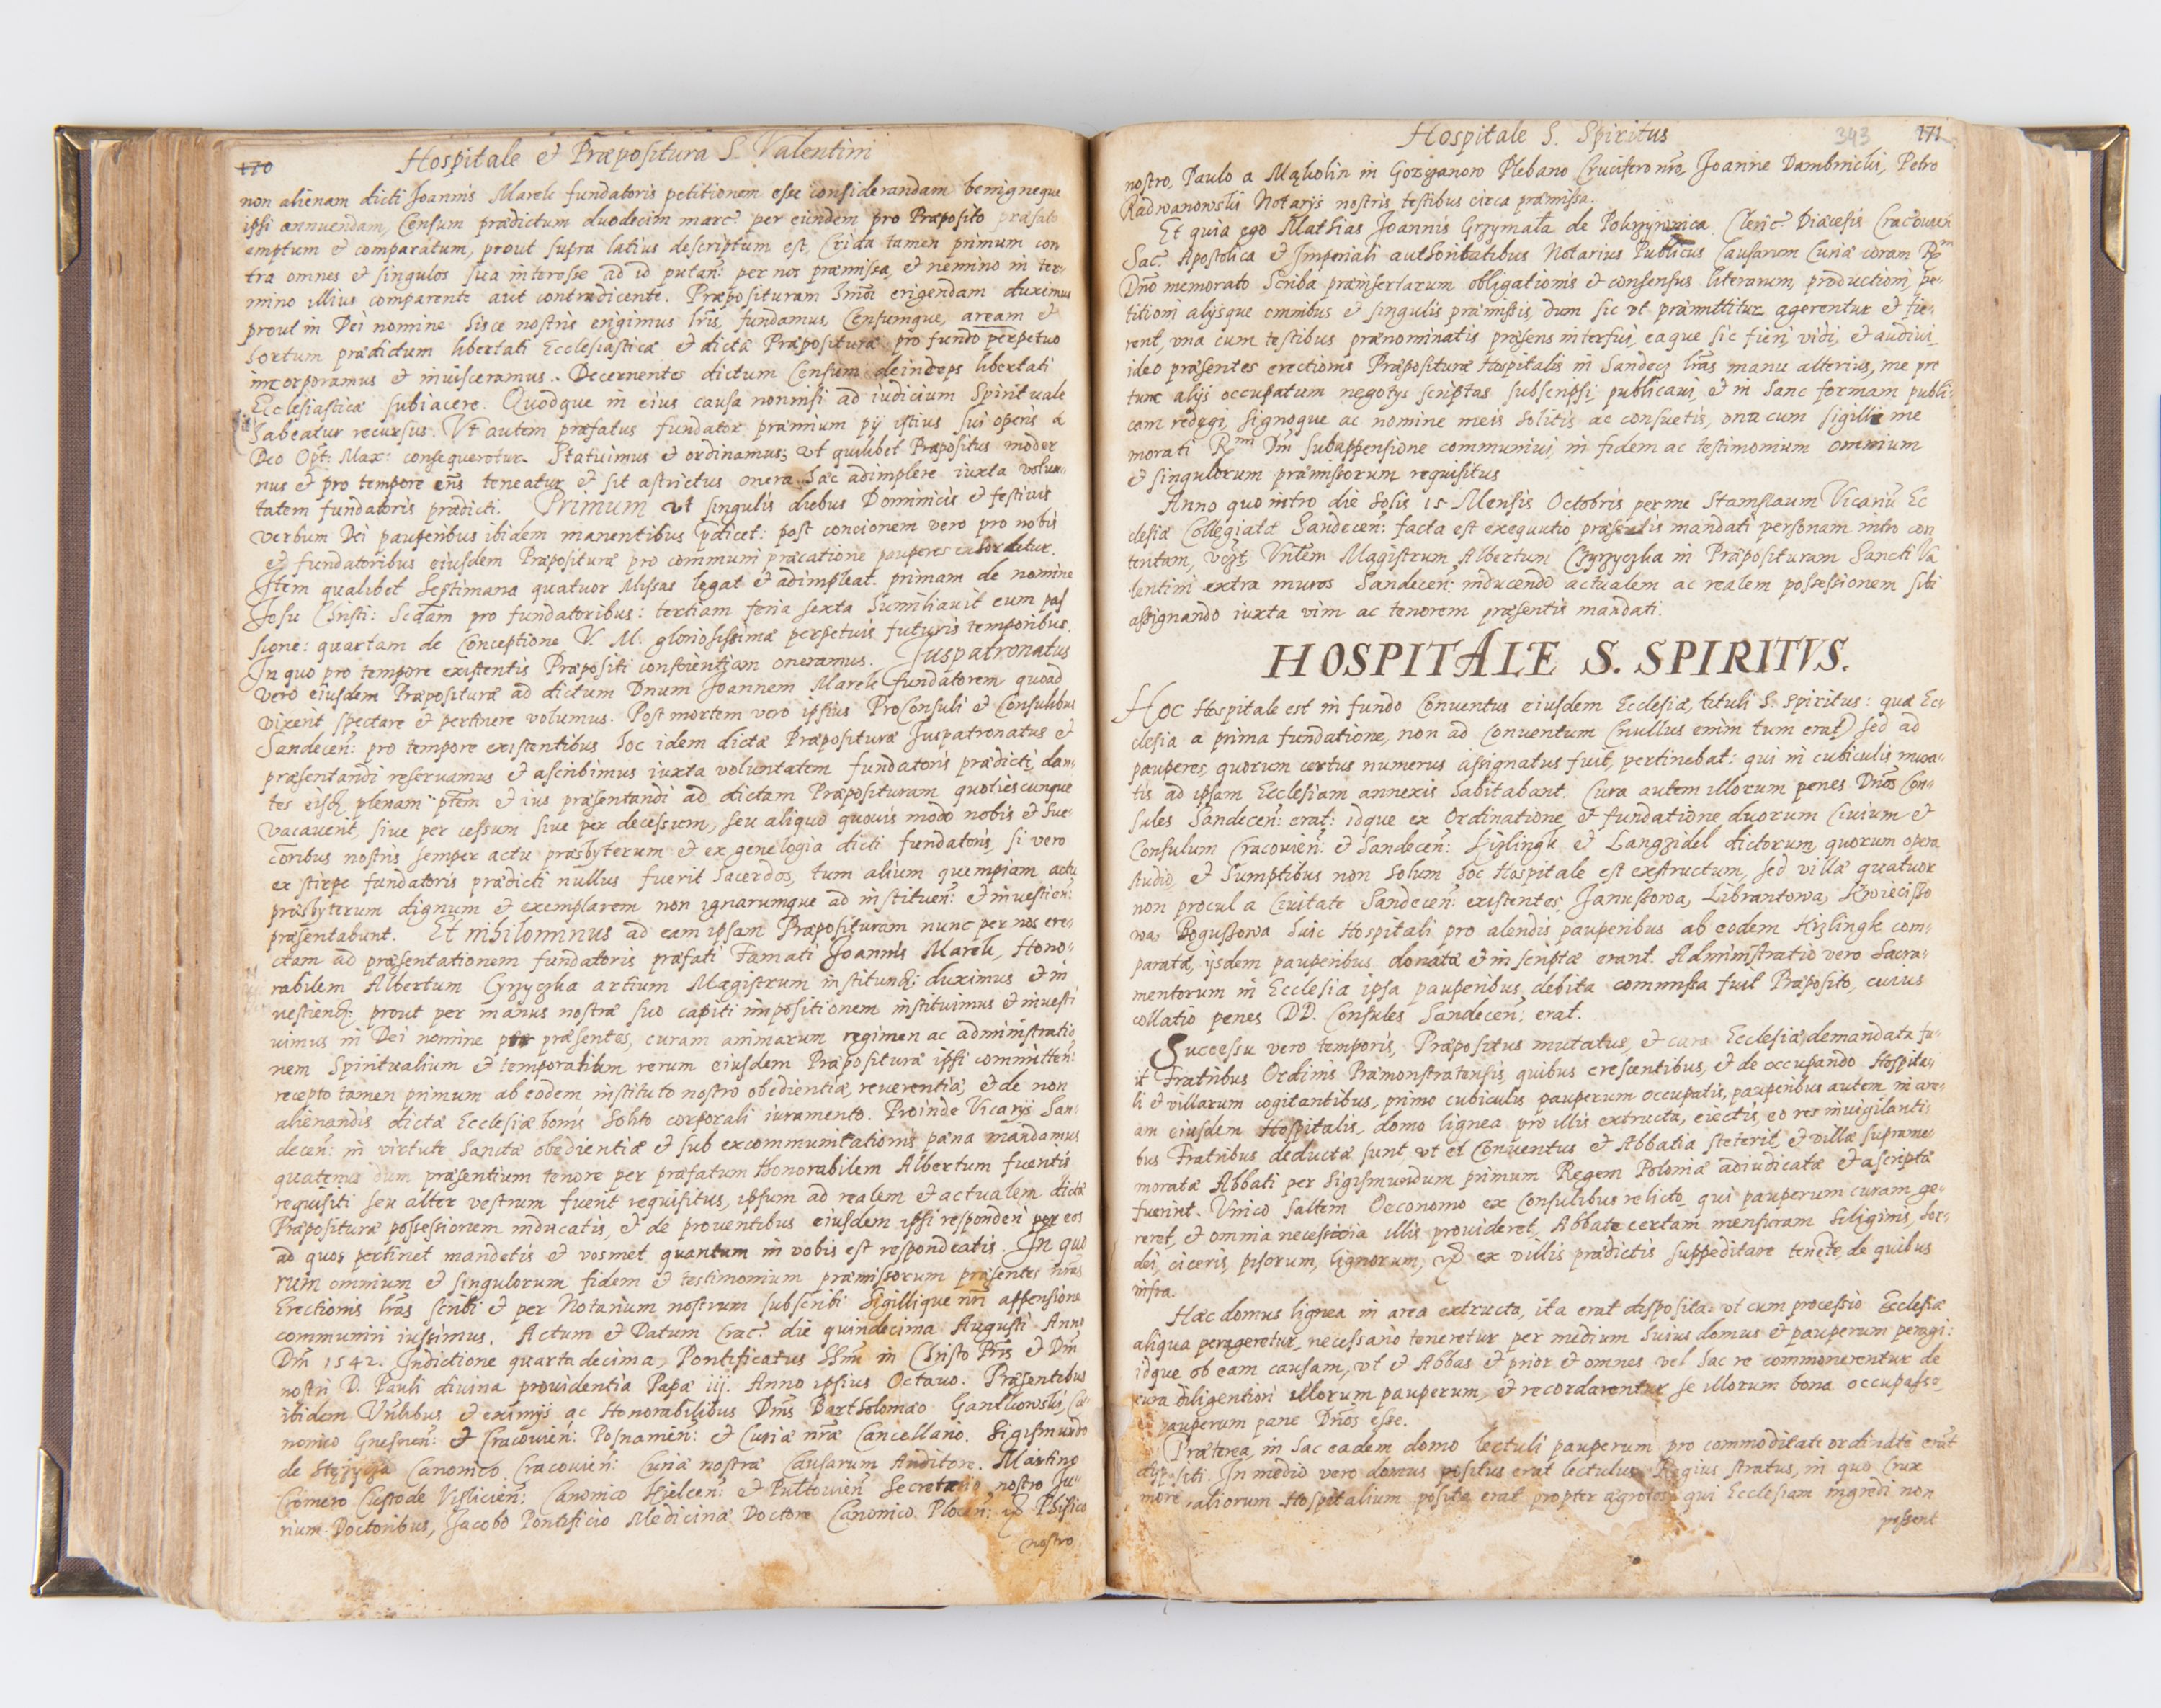 170
Hospitale & Præpositura S. Valentini
non alienam dicti Joannis Marek fundatoris petitionem esse considerandam benigneque
ipsi annuendam, Censum prædictum duodecim marc: per eundem pro Præposito præfato
emptum & comparatum, prout supra latius descriptum est, Crida tamen primum con
tra omnes & singulos sua interesse ad id putan: per nos præmissa, & nemine in ter-
mino illius comparente aut contradicente. Præposituram erigendam duximus
prout in Dei nomine hisce nostris erigimus lris, fundamus, Censumque, aream &
hortum prædictum libertati Ecclesiasticæ & dictæ Præposituræ pro fundo perpetuo
incorporamus & inuisceramus. Decernentes dictum Censum deinceps libertati
Ecclesiasticæ subiacere. Quodque in eius causa nonnisi ad iudicium Spirituale
habeatur recursus. Vt autem præfatus fundator præmium pij istius sui operis a
Deo Opt: Max: consequeretur. Statuimus & ordinamus; vt quilibet Præpositus moder
nus & pro tempore eñs teneatur & sit astrictus onera hæc adimplere iuxta volun-
tatem fundatoris prædicti. Primum vt singulis diebus Dominicis & festiuis
verbum Dei pauperibus ibidem manentibus p̄dicet: post concionem vero pro nobis
& fundatoribus eiusdem Præposituræ pro communi præcatione pauperes exhortetur.
Item qualibet Septimana quatuor Missas legat & adimpleat. primam de nomine
Jesu Christi: Sēdam pro fundatoribus: tertiam feria sexta Humiliauit cum pas
sione: quartam de Conceptione V. M. gloriosissimæ perpetuis futuris temporibus.
In quo pro tempore existentis Præpositi conscientiam oneramus. Juspatronatus
vero eiusdem Præposituræ ad dictum Dnum Joannem Marek fundatorem quoad
vixerit spectare & pertinere volumus. Post mortem vero ipsius ProConsuli & Consulibus
Sandecen: pro tempore existentibus hoc idem dictæ Præposituræ Juspatronatus &
præsentandi reseruamus & ascribimus iuxta voluntatem fundatoris prædicti, dan-
tes eisq; plenam ptem & ius præsentandi ad dictam Præposituram quotiescunque
vacauerit, siue per cessum siue per decessum, seu aliquo quouis modo nobis & Suc-
coribus nostris semper actu præsbyterum & ex genelogia dicti fundatoris, si vero
ex stirpe fundatoris prædicti nullus fuerit Sacerdos, tum alium quempiam actu
præsbyterum dignum & exemplarem non ignarumque ad instituen: & inuestien:
præsentabunt. Et nihilominus ad eam ipsam Præposituram nunc per nos ere-
ctam ad præsentationem fundatoris præfati Famati Joannis Marek, Hono-
rabilem Albertum Cyzyczka artium Magistrum instituend: duximus & in
uestiend: prout per manus nostræ suo capiti impositionem instituimus & inuesti
uimus in Dei nomine per præsentes, curam animarum regimen ac administratio
nem Spiritualium & temporalium rerum eiusdem Præposituræ ipsi committen:
recepto tamen primum ab eodem instituto nostro obedientiæ, reuerentiæ, & de non
alienandis dictæ Ecclesiæ bonis solito corporali iuramento. Proinde Vicarijs San-
decen: in virtute Sanctæ obedientiæ & sub excommunicationis pæna mandamus
quatenus dum præsentium tenore per præfatum Honorabilem Albertum fueritis
requisiti seu alter vestrum fuerit requisitus, ipsum ad realem & actualem dictæ
Præposituræ possessionem inducatis, & de prouentibus eiusdem ipsi responderi per eos
ad quos pertinet mandetis & vosmet quantum in vobis est respondeatis. In quo
rum omnium & singulorum fidem & testimonium præmissorum præsentes nras
Erectionis lras scribi & per Notarium nostrum subscribi Sigillique nri appensione
communiri iussimus. Actum & Datum Crac: die quindecima Augusti Anno
Dni 1542. Indictione quarta decima, Pontificatus Ssmi in Christo Pris & Dni
nostri D. Pauli diuina prouidentia Papæ iij. Anno ipsius Octauo. Præsentibus
ibidem Vnlibus & eximijs ac Honorabilibus Dnis Bartholomæo Gantkowski, Ca-
nonico Gnesnen: & Cracouien: Posnanien: & Curiæ nræ Cancellario. Sigismundo
de Stężyca Canonico Cracouien: Curiæ nostræ Causarum Auditore. Martino
Cromero Custode Vislicien: Canonico Kielcen: & Pultouien Secretario nostro Ju-
rium Doctoribus, Jacobo Pontificio Medicinæ Doctore Canonico Plocen: & Phisico
nostro
Hospitale S. Spiritus
343
171
nostro, Paulo a Mąkolin in Plebano Crucifero nro, Joanne Dambrncki, Petro
Radwanowski Notarijs nostris testibus circa præmissa.
Et quia ego Mathias Joannis Grzymała de Clenc: Diæcesis Cracouien
Sac: Apostolica & Imperiali authoritatibus Notarius Publicus Causarum Curiæ coram Rmo
Dno memorato Scriba præinsertarum obligationis & consensus literarum, productioni, pe-
titioni alijsque omnibus & singulis præmissis, dum sic vt præmittitur agerentur & fie-
rent, vna cum testibus prænominatis præsens interfui, eaque sic fieri, vidi, & audiui
ideo præsentes erectionis Præposituræ Hospitalis in Sandecz lras manu alterius, me pro
tunc alijs occupatum negotys scriptas subscripsi, publicaui, & in hanc formam publi-
cam redegi, signoque ac nomine meis solitis ac consuetis, ona cum sigilli me
morati Rmi Dni subappensione communiui, in fidem ac testimonium omnium
& singulorum præmissorum requisitus
Anno quo intro die Solis 15 Mensis Octobris per me Stanislaum Vicariu Ec
clesiæ Collegiatæ Sandecen: facta est exequutio præsentis mandati personam intro con
tentam, vczt Vnlem Magistrum Albertum Czyzyczka in Præposituram Sancti Va
lentini extra muros Sandecen: inducendo actualem ac realem possessionem sibi
assignando iuxta vim ac tenorem præsentis mandati.
HOSPITALE S. SPIRITVS.
Hoc Hospitale est in fundo Conuentus eiusdem Ecclesiæ, tituli S. Spiritus: quæ Ec-
clesia a prima fundatione, non ad Conuentum (nullus enim tum erat) sed ad
pauperes, quorum certus numerus assignatus fuit, pertinebat: qui in cubiculis mura-
tis ad ipsam Ecclesiam annexis habitabant. Cura autem illorum penes Dnos Con-
sules Sandecen: erat: idque ex Ordinatione & fundatione duorum Ciuium &
Consulum Cracouien: & Sandecen: Kizlingk & Langzidel dictorum, quorum opera
studio, & sumptibus non solum hoc Hospitale est exstructum, sed villæ quatuor
non procul a Ciuitate Sandecen: existentes, Janussowa, Librantowa, Kwiecisso
wa, Bogussowa huic Hospitali pro alendis pauperibus ab eodem Kizlingk com-
paratæ, ijsdem pauperibus donatæ & inscriptæ erant. Administratio vero Sacra-
mentorum in Ecclesia ipsa pauperibus debita commissa fuit Præposito, cuius
collatio penes DD. Consules Sandecen: erat.
Successu vero temporis, Præpositus mutatus, & cura Ecclesiæ demandata fu-
it Fratribus Ordinis Præmonstratensis, quibus crescentibus, & de occupando Hospita-
li & villarum cogitantibus, primo cubiculis pauperum occupatis, pauperibus autem in are-
am eiusdem Hospitalis, domo lignea pro illis extructa, eiectis, eo res inuigilanti-
bus Fratribus deductæ sunt, vt et Conuentus & Abbatia steterit, & villæ supramc-
moratæ Abbati per Sigismundum primum Regem Poloniæ adiudicatæ & ascriptæ
fuerint. Vnico saltem Oeconomo ex Consulibus relicto, qui pauperum curam ge-
reret, & omnia necessaria illis prouideret, Abbate certam mensuram siliginis, hor-
dei, ciceris, pisorum, lignorum, & ex villis prædictis suppeditare tenete, de quibus
infra.
Hæc domus lignea in area extructa, ita erat disposita: vt cum processio Ecclesiæ
aliqua perageretur, necessario teneretur per medium huius domus & pauperum peragi:
idque ob eam causam, vt & Abbas & prior & omnes vel hac re commonerentur de
cura diligentiori illorum pauperum, & recordarentur se illorum bona occupasse,
& pauperum pane Dnos esse.
Præterea, in hac eadem domo lectuli pauperum pro commoditate ordinate erāt
dispositi. In medio vero domus positus erat lectulus Regius stratus, in quo Crux
more aliorum Hospitalium posita erat propter ægrotos, qui Ecclesiam ingredi non
possent